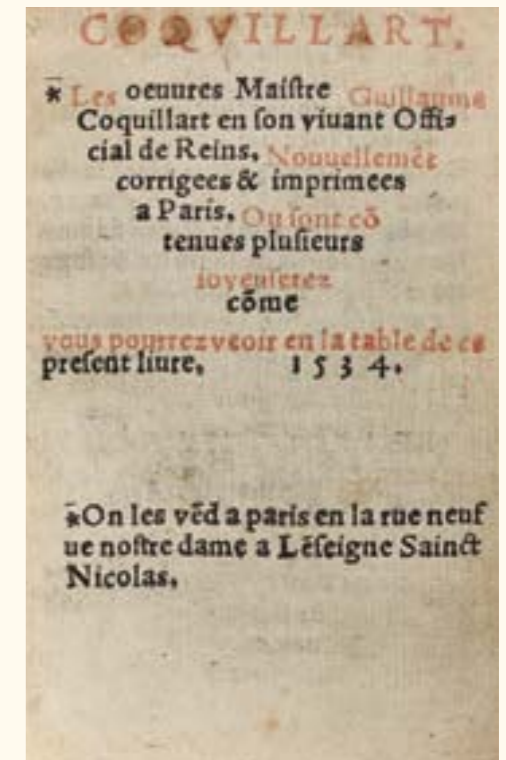 COQVILLART.
* Les oeuures Maiſtre Guillaume
Coquillart en ſon viuant Offi=
cial de Reins, Nouuellemēt
corrigees & imprimees
a Paris. Ou ſont cō
tenues pluſieurs
ioyeuſetez
cōme
vous pourrez veoir en la table de ce
preſent liure, 1534.
*On les vēd a paris en la rue neuf
ue noſtre dame a Lēſeigne Sainct
Nicolas.